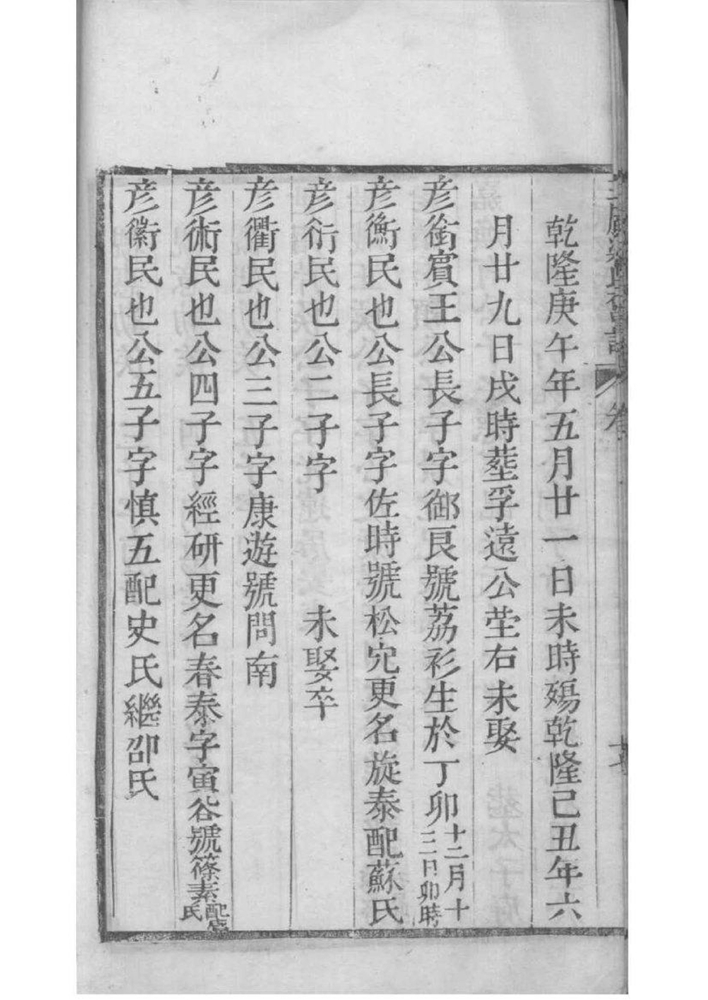 乾隆庚午年五月廿一日未時殤乾隆己丑年六
月廿九日戌時塟孚遠公塋右未娶
彦銜賓王公長子字御良號荔衫生於丁卯十二月十三日卯時
彦衡民也公長子字佐時號松宂更名旋泰配蘇氏
彦衎民也公二子字 未娶卒
彦衢民也公三子字康遊號問南
彦術民也公四子字經研更名春泰字寅谷號篠素配氏
彦徽民也公五子字慎五配史氏繼邵氏